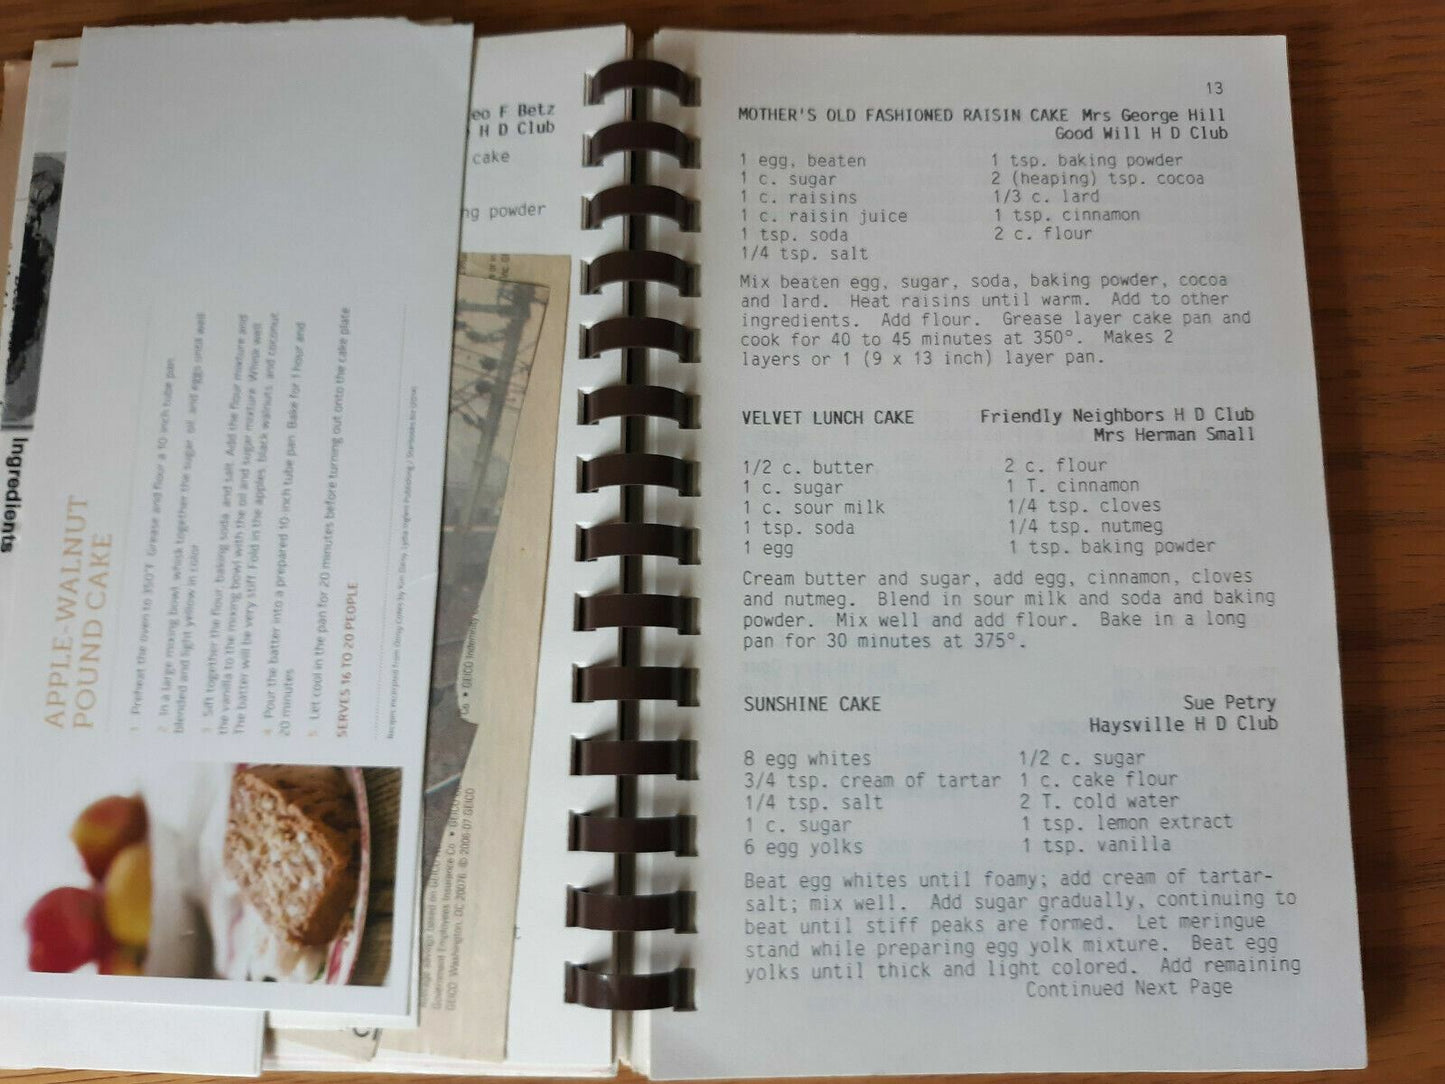 eo F Betz
H D Club
cake
ng powder
Ingredients
APPLE-WALNUT
POUND CAKE
1 Preheat the oven to 350°F. Grease and flour a 10-inch tube pan.
2 In a large mixing bowl, whisk together the sugar, oil, and eggs until well
blended and light yellow in color.
3 Sift together the flour, baking soda, and salt. Add the flour mixture and
the vanilla to the mixing bowl with the oil and sugar mixture. Whisk well.
The batter will be very stiff. Fold in the apples, black walnuts, and coconut.
4 Pour the batter into a prepared 10-inch tube pan. Bake for 1 hour and
20 minutes.
5 Let cool in the pan for 20 minutes before turning out onto the cake plate.
SERVES 16 TO 20 PEOPLE
Government Employees Insurance Co. • GEICO
GEICO: Washington, DC 20076. © 2006-07 GEICO
Co. • GEICO Indemnity
13
MOTHER'S OLD FASHIONED RAISIN CAKE Mrs George Hill
Good Will H D Club
1 egg, beaten 1 tsp. baking powder
1 c. sugar 2 (heaping) tsp. cocoa
1 c. raisins 1/3 c. lard
1 c. raisin juice 1 tsp. cinnamon
1 tsp. soda 2 c. flour
1/4 tsp. salt
Mix beaten egg, sugar, soda, baking powder, cocoa
and lard. Heat raisins until warm. Add to other
ingredients. Add flour. Grease layer cake pan and
cook for 40 to 45 minutes at 350°. Makes 2
layers or 1 (9 x 13 inch) layer pan.
VELVET LUNCH CAKE Friendly Neighbors H D Club
Mrs Herman Small
1/2 c. butter 2 c. flour
1 c. sugar 1 T. cinnamon
1 c. sour milk 1/4 tsp. cloves
1 tsp. soda 1/4 tsp. nutmeg
1 egg 1 tsp. baking powder
Cream butter and sugar, add egg, cinnamon, cloves
and nutmeg. Blend in sour milk and soda and baking
powder. Mix well and add flour. Bake in a long
pan for 30 minutes at 375°.
SUNSHINE CAKE Sue Petry
Haysville H D Club
8 egg whites 1/2 c. sugar
3/4 tsp. cream of tartar 1 c. cake flour
1/4 tsp. salt 2 T. cold water
1 c. sugar 1 tsp. lemon extract
6 egg yolks 1 tsp. vanilla
Beat egg whites until foamy; add cream of tartar-
salt; mix well. Add sugar gradually, continuing to
beat until stiff peaks are formed. Let meringue
stand while preparing egg yolk mixture. Beat egg
yolks until thick and light colored. Add remaining
Continued Next Page